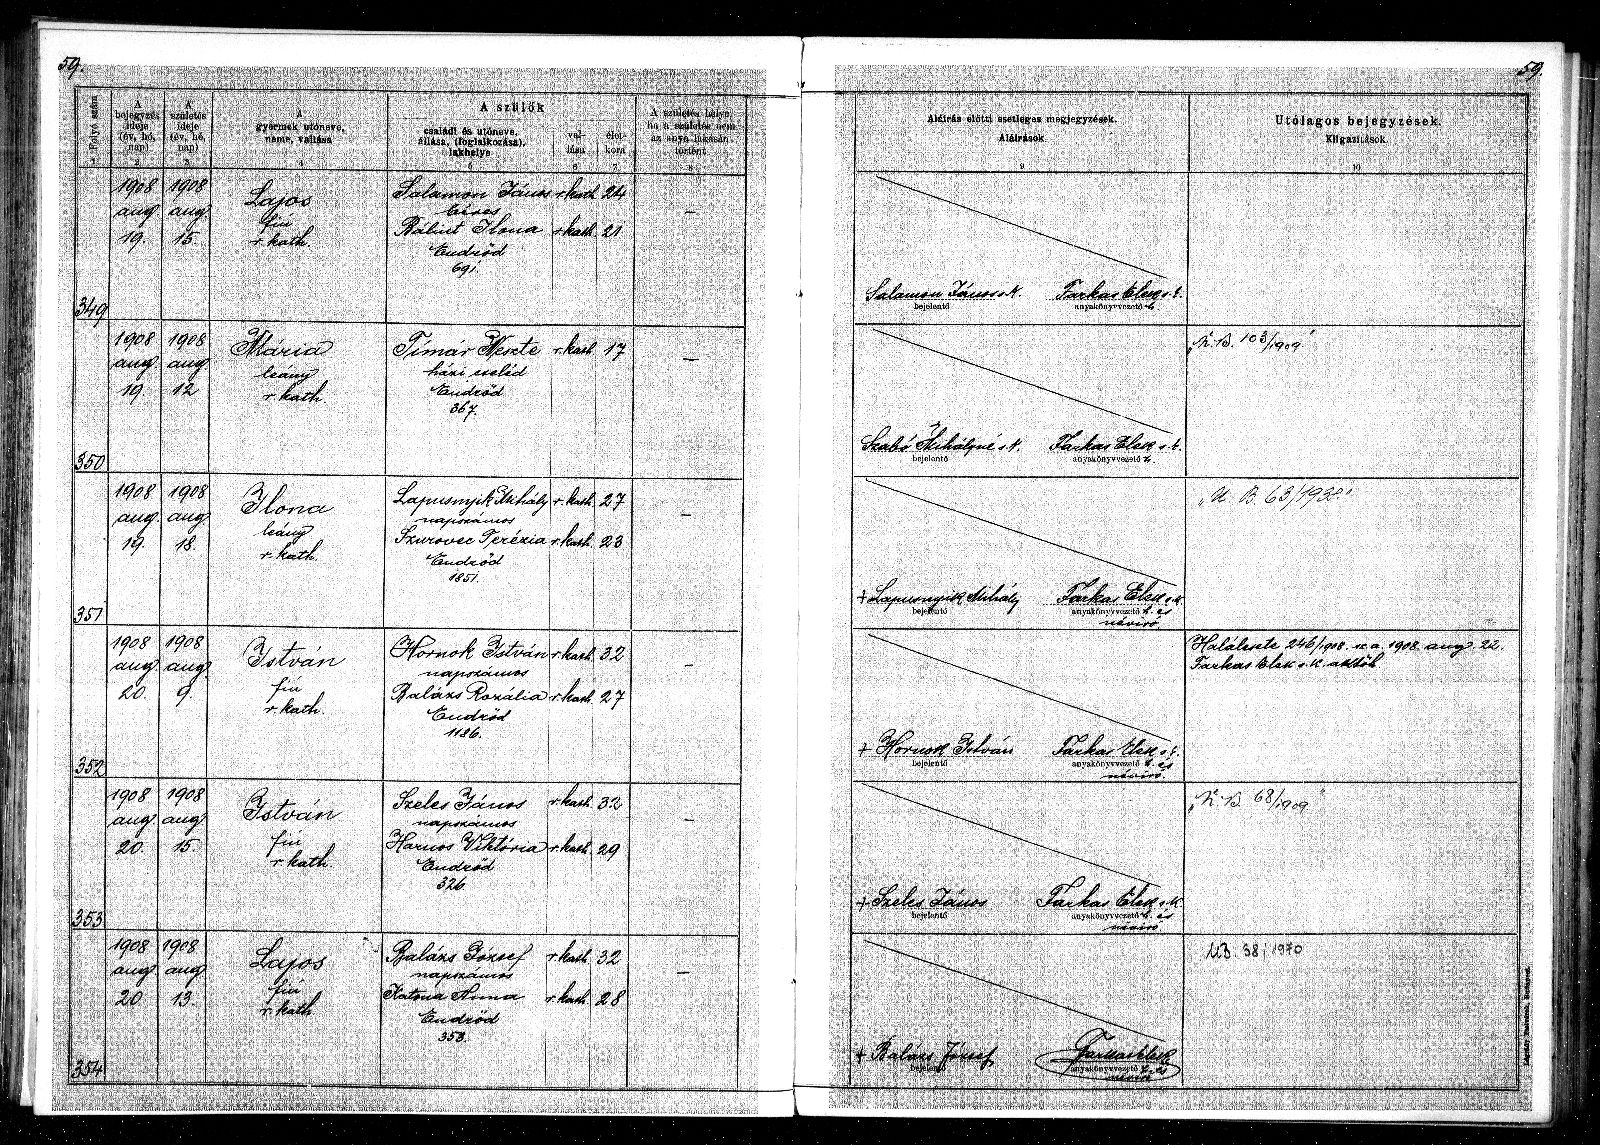 59.
59.
Folyó szám
A bejegyzés ideje (év, hó, nap)
A születés ideje (év, hó, nap)
A gyermek utóneve, neme, vallása
A szülők
családi és utóneve, állása, (foglalkozása), lakhelye
vallása
életkora
A születés helye, ha a születés nem az anya lakásán történt
Aláírás előtti esetleges megjegyzések.
Aláírások
Utólagos bejegyzések.
Kiigazítások
1 2 3 4 5 6 7 8 9 10
349
1908 aug 19.
1908 aug 15.
Lajos
fiú
r. kath.
Salamon János r. kath. 24
béres
Bálint Ilona r. kath. 21
Endrőd
691.
—
Salamon János s. k. Farkas Elek s. k.
bejelentő anyakönyvvezető h.
350
1908 aug. 19.
1908 aug. 12
Mária
leány
r. kath.
Tímár Neszte r. kath. 17
házi cseléd
Endrőd
367.
—
Szabó Mihályné s. k. Farkas Elek s. k.
bejelentő anyakönyvvezető h.
„N. B. 103/1909"
351
1908 aug. 19.
1908 aug 18.
Ilona
leány
r. kath.
Lapusnyik Mihály r. kath. 27
napszámos
Szurovec Terézia r. kath. 23
Endrőd
1851.
—
+ Lapusnyik Mihály Farkas Elek s. k.
bejelentő anyakönyvvezető h. és
névíró.
352
1908 aug. 20.
1908 aug. 9.
István
fiú
r. kath.
Hornok István r. kath. 32
napszámos
Balázs Rozália r. kath. 27
Endrőd
1186.
—
+ Hornok István Farkas Elek s. k.
bejelentő anyakönyvvezető h. és
névíró.
Halálesete 246/1908. sz. a. 1908. aug. 22.
Farkas Elek s. k. aktkvh
353
1908 aug. 20.
1908 aug. 15.
István
fiú
r. kath.
Szeles János r. kath. 32
napszámos
Harnos Viktória r. kath. 29
Endrőd
326.
—
+ Szeles János Farkas Elek s. k.
bejelentő anyakönyvvezető h. és
névíró.
„N. B. 68/1909"
354
1908 aug 20
1908 aug. 13.
Lajos
fiú
r. kath
Balázs József r. kath. 32
napszámos
Katona Anna r. kath. 28
Endrőd
353.
—
+ Balázs József Farkas Elek
bejelentő anyakönyvvezető h. és
névíró
UB. 38/1970